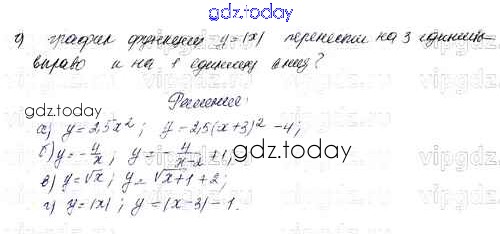 gdz.today
г) график функции y=|x| перенести на 3 единицы
вправо и на 1 единицу вниз?
gdz.today
Решение:
а) y=2,5x²; y=2,5(x+3)²-4;
б) y=-4/x; y=-4/(x-2)+1;
gdz.today
в) y=√x; y=√x+1+2;
г) y=|x|; y=(x-3)-1.